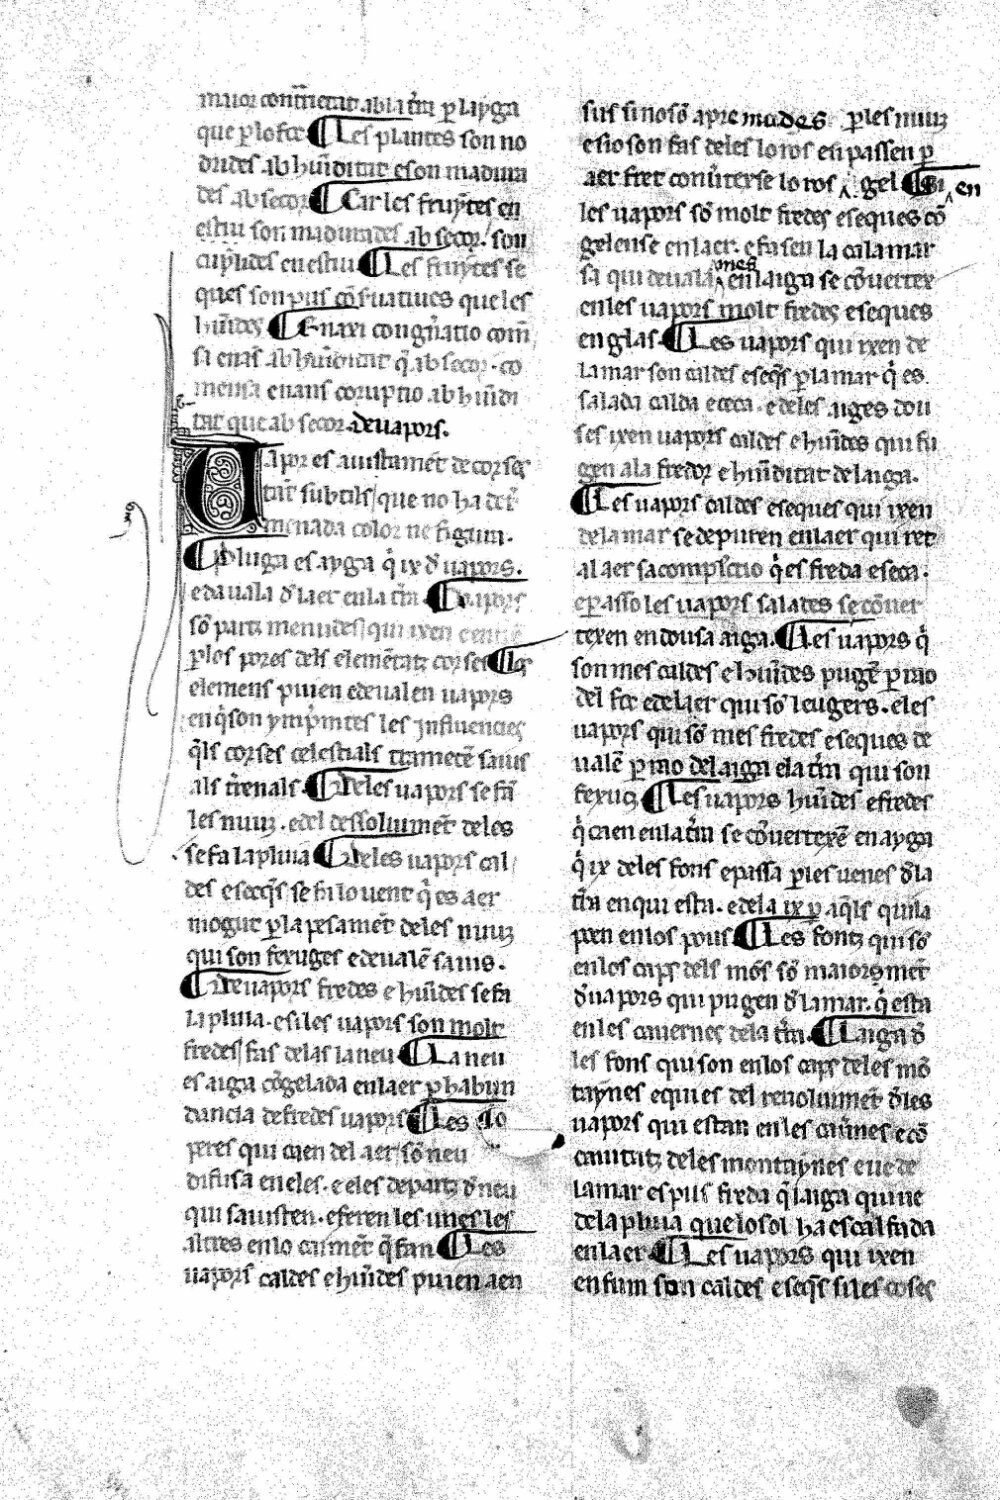 maior contrarietat ab la t̃ra ꝑ layga
que ꝑ lo foc ¶ Les plantes son no
drides ab hũiditat e son madura
des ab secor ¶ Car les fruyt̃es en
estiu son madurades ab secor. son
cuyllides en estiu ¶ Les fruyt̃es se
ques son pus cõseruatiues que les
hũides ¶ En axi con gñatio com̃
sa enãs ab hũiditat q̃ ab secor. co
mensa enans coruptio ab hũidi
tat que ab secor. de uapors.
Uapor es aiustamẽt de corses
tãt subtils que no ha det̃
menada color ne figura.
¶ Pluga es ayga q̃ ix d̃ uapors.
e dauala d̃ laer en la t̃ra ¶ Uapors
sõ partz menudes qui ixen
ꝑ los pores dels elemẽtatz corses ¶ Los
elemens puien e deualen uapors
en q̃ son ympm̃tes les influencies
q̃ls corses celestials trametẽ saius
als t̃renals. ¶ De les uapors se fã
les nuuz. e del dessoluimẽt deles
se fa la pluia ¶ De les uapors cal
des e seq̃s se fa lo uent q̃ es aer
mogut ꝑ la pesamẽt deles nuuz
qui son fexuges e deualẽ saius.
¶ De uapors fredes e hũides se fa
la pluia. e si les uapors son molt
fredes fas delas la neu ¶ La neu
es aiga cõgelada en laer ꝑ habun
dancia de fredes uapors ¶ Les co
peres qui caen del aer sõ neu
difusa en eles. e eles departz d̃ neu
qui saiusten. e feren les unes les
altres en lo caimẽt q̃ fan ¶ Les
uapors caldes e hũides puien aen
sus si no sõ apremades ꝑ les nuuz
e sio son fas deles lo ros en passen ꝑ
aer fret conũterse lo ros gel ¶ Si en
les uapors sõ molt fredes e seques cõ
gelense en laer. e fa sen la calamar
sa qui deuala mes en laiga se cõuertex
en les uapors molt fredes e seques
en glas. ¶ Les uapors qui ixen de
la mar son caldes e seq̃s ꝑ la mar q̃ es
salada calda e seca. e deles aiges dou
ses ixen uapors caldes e hũides qui fu
gen ala fredor e hũiditat de laiga.
¶ Les uapors caldes e seques qui ixen
dela mar se depuren en laer qui ret
al aer sa complectio q̃ es freda e seca.
e ꝑ asso les uapors salades se cõuer
texen en dousa aiga. ¶ Les uapors q̃
son mes caldes e hũides pugẽ ꝑ rao
del foc e del aer qui sõ leugers. e les
uapors qui sõ mes fredes e seques de
ualẽ ꝑ rao del aiga e la t̃ra qui son
fexucz ¶ Les uapors hũides e fredes
q̃ caen en la t̃ra se cõuertexẽ en ayga
q̃ ix deles fons e passa ꝑ les uenes d̃ la
t̃ra en qui esta. e dela ix ꝑ aq̃ls qui la
pren en los pous ¶ Les fontz qui sõ
en los caps dels mõs sõ maiorsmẽt
d̃ uapors qui pugen d̃ la mar. q̃ esta
en les cauernes dela t̃ra. ¶ Laiga d̃
les fons qui son en los caps deles mõ
taynes e qui es del reuoluimẽt d̃ les
uapors qui estan en les cauñes e cõ
cauitatz deles montaynes e ue de
la mar es pus freda q̃ laiga qui ue
dela pluia que lo sol ha escalfada
en laer ¶ Les uapors qui ixen
en fum son caldes e seq̃s si les coses